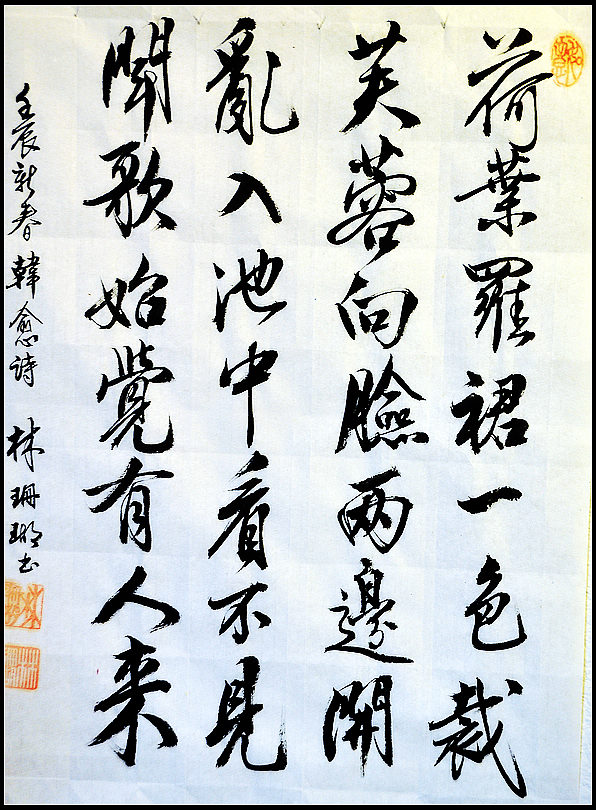 荷葉羅裙一色裁
芙蓉向臉兩邊開
亂入池中看不見
聞歌始覺有人來
壬辰新春韓愈詩 林珊瑚书